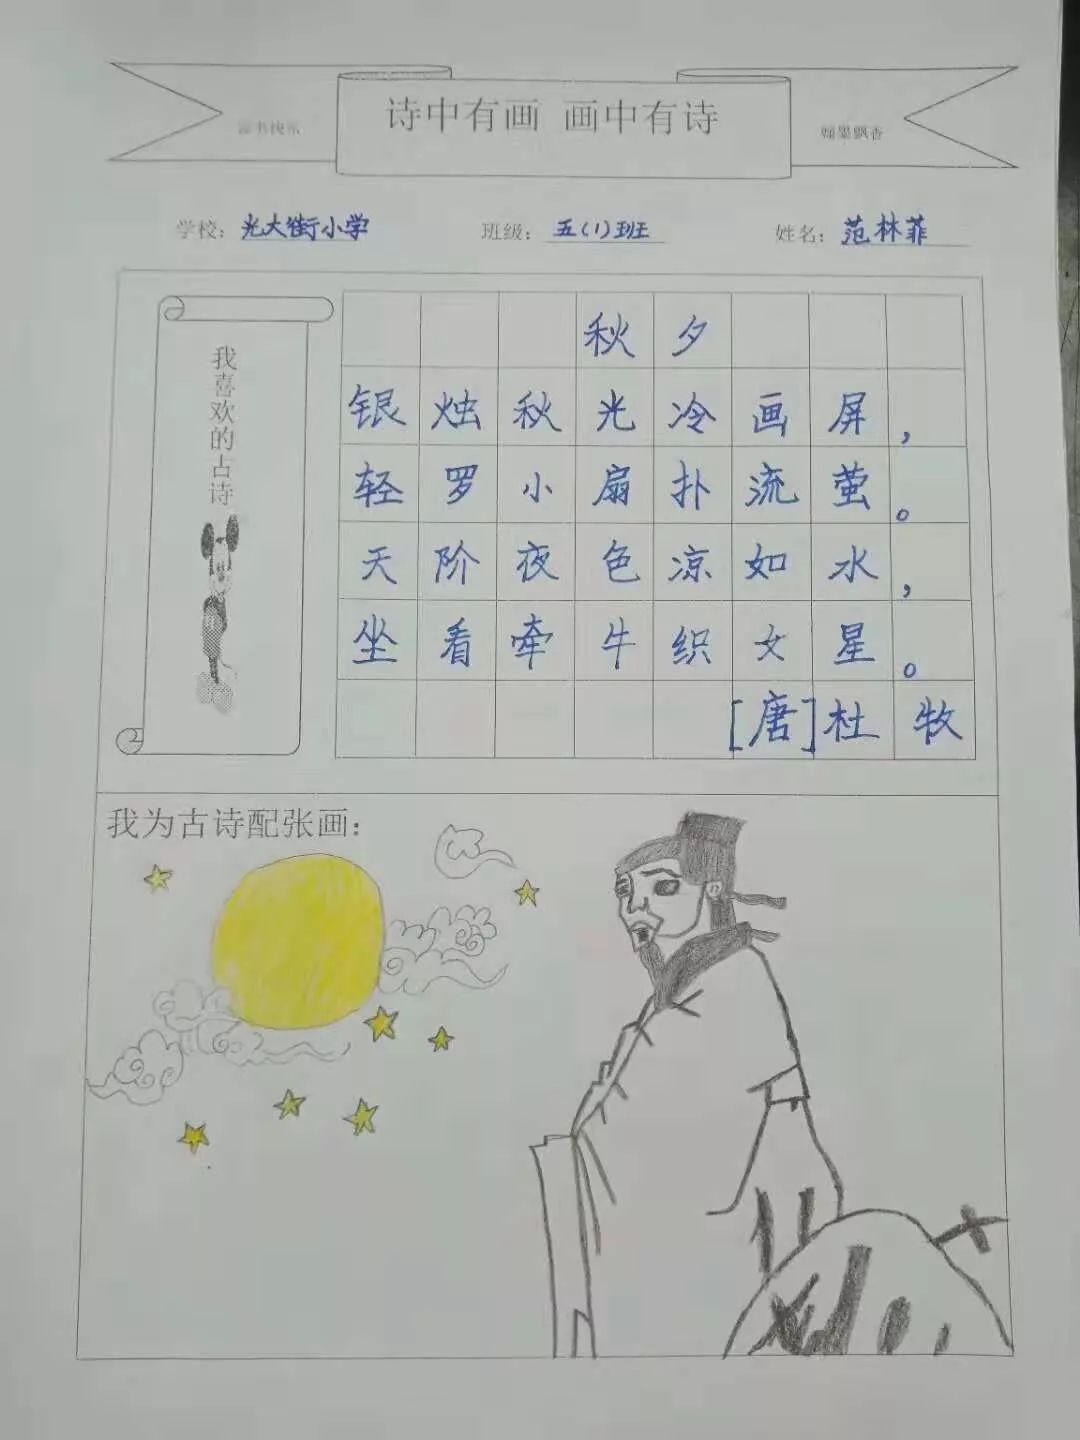 诗中有画 画中有诗
读书快乐
翰墨飘香
学校：光大街小学 班级：五（1）班 姓名：范林菲
我喜欢的古诗
秋夕
银烛秋光冷画屏，
轻罗小扇扑流萤。
天阶夜色凉如水，
坐看牵牛织女星。
[唐]杜牧
我为古诗配张画：